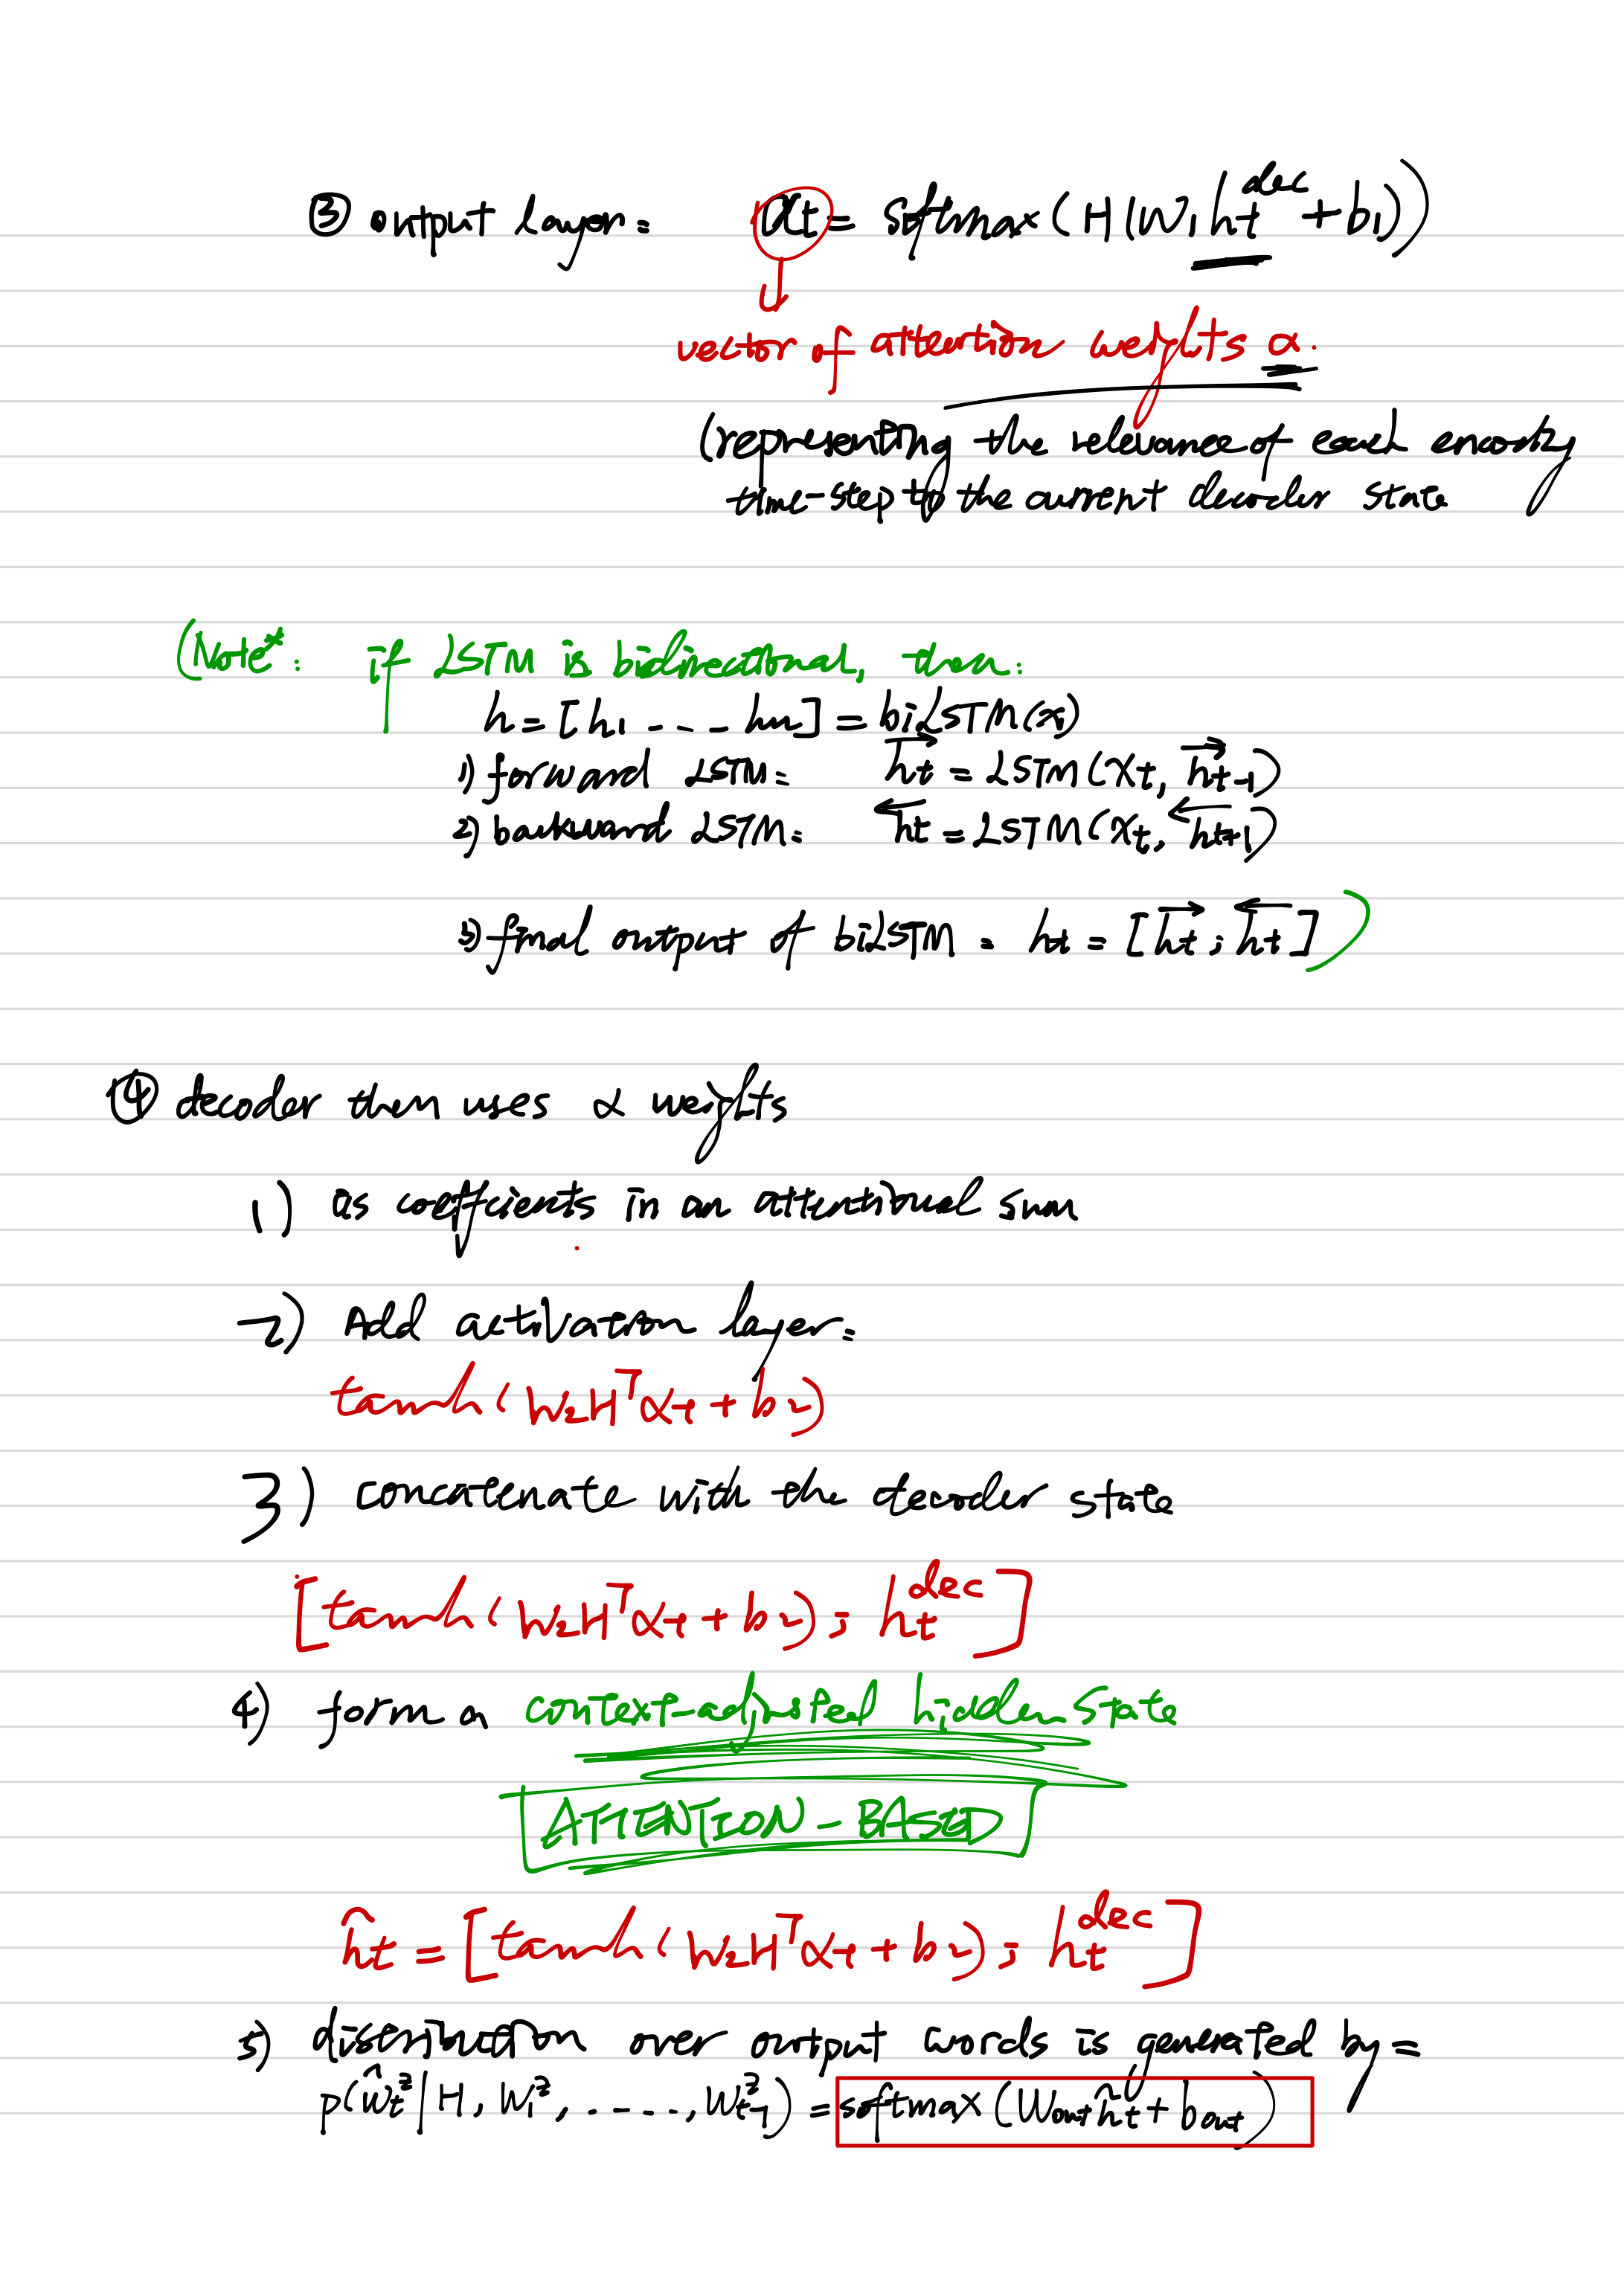 ③ output layer: αt = softmax(H(W₁ht^dec + b₁))
↓
vector of attention weights α.
(representing the relevance of each encoding
time-step to the current decoder state
(Note*: if LSTM is bidirectional, then:
h = [h₁, ... hm] = biLSTM(x)
1) forward LSTM: →ht = LSTM(xt, →ht-1)
2) backward LSTM: ←ht = LSTM(xt, ←ht+1)
3) final output of biLSTM: ht = [→ht; ←ht])
④ decoder then uses α weights
1) as coefficients in an attentional sum
2) Add activation layer:
tanh(W₂Hᵀαt + b₂)
3) concatenate with the decoder state
[tanh(W₂Hᵀαt + b₂); ht^dec]
4) form a context-adjusted hidden state
ATTENTION-BASED
ĥt = [tanh(W₂Hᵀαt + b₂); ht^dec]
5) distribution over output words is generated by =
p(ŵt² | H, w₁², ....., wt-1²) = softmax(Wout ĥt + bout)